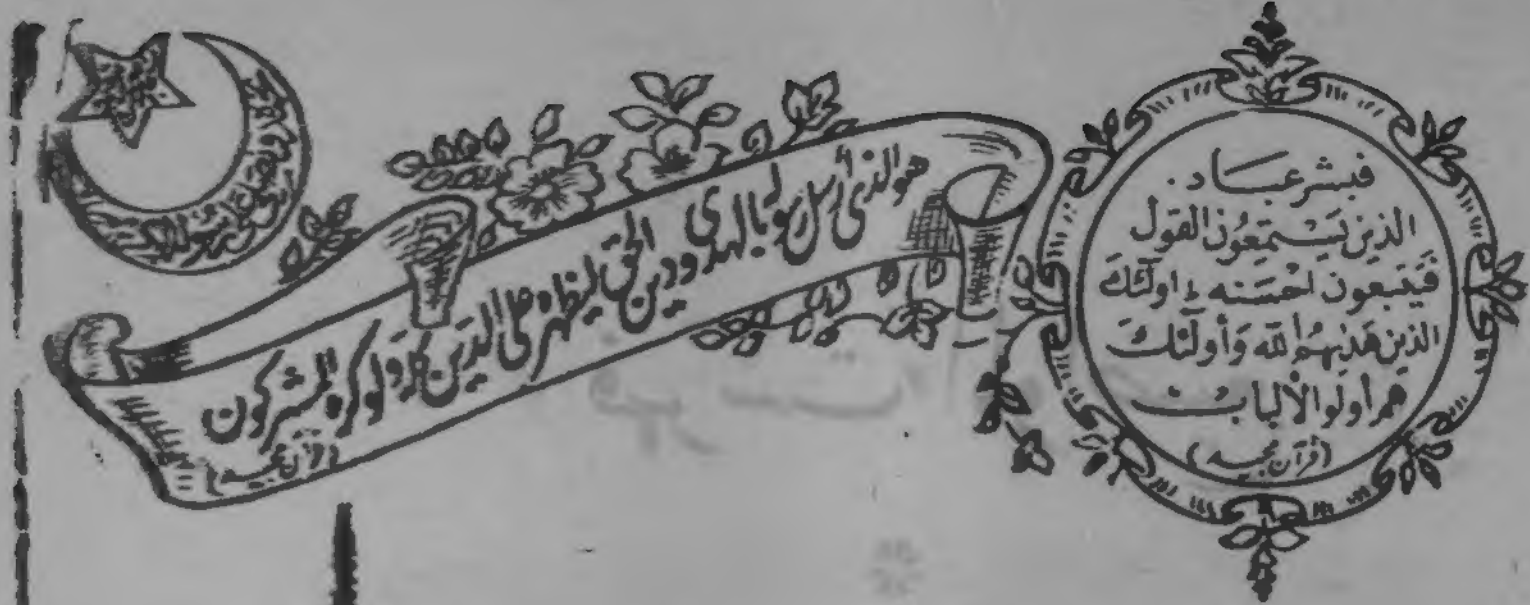 فبشر عباد.
الذين يستمعون القول
فيتبعون احسنه ط اولئك
الذين هديهم الله وأولئك
هم أولو الألباب
(قرآن مجيد)
هو الذي أرسل رسوله بالهدى ودين الحق ليظهره على الدين كله ولو كره المشركون
(قرآن مجيد)